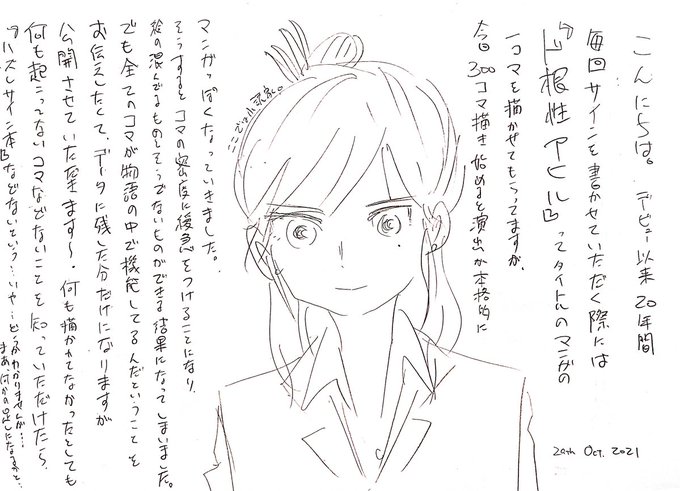 こんにちは。デビュー以来20年間
毎回サインを書かせていただく際には
『ド根性アヒル』ってタイトルのマンガの
一コマを描かせてもらってますが、
今回300コマ描き始めると演出が本格的に
ここでは小説家。
マンガっぽくなっていきました。
そうするとコマの密度に緩急をつけることになり、
絵の混んでるものとそうでないものができる結果になってしまいました。
でも全てのコマが物語の中で機能してるんだということを
お伝えしたくて、データに残した分だけになりますが
公開させていただきます〜。何も描かれてなかったとしても
何も起こってないコマなどないことを知っていただけたら、
『ハズレサイン本』などないという…いや…どうかわかりませんが…
まあ、何かの足しになるかと…
20th Oct. 2021